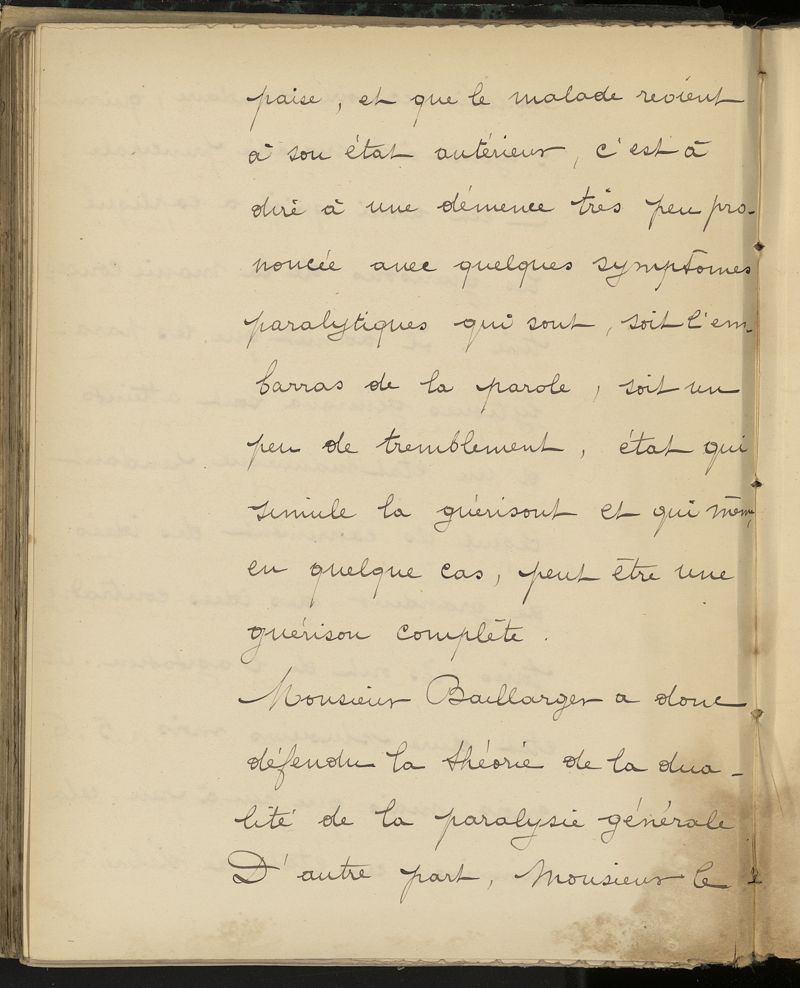 paise, et que le malade revient
à son état antérieur, c'est à
dire à une démence très peu pro-
noncée avec quelques symptômes
paralytiques qui sont, soit l'em-
barras de la parole, soit un
peu de tremblement, état qui
simule la guérisont et qui même,
en quelque cas, peut être une
guérison complète.
Monsieur Baillarger a donc
défendu la théorie de la dua-
lité de la paralysie générale
D'autre part, Monsieur le